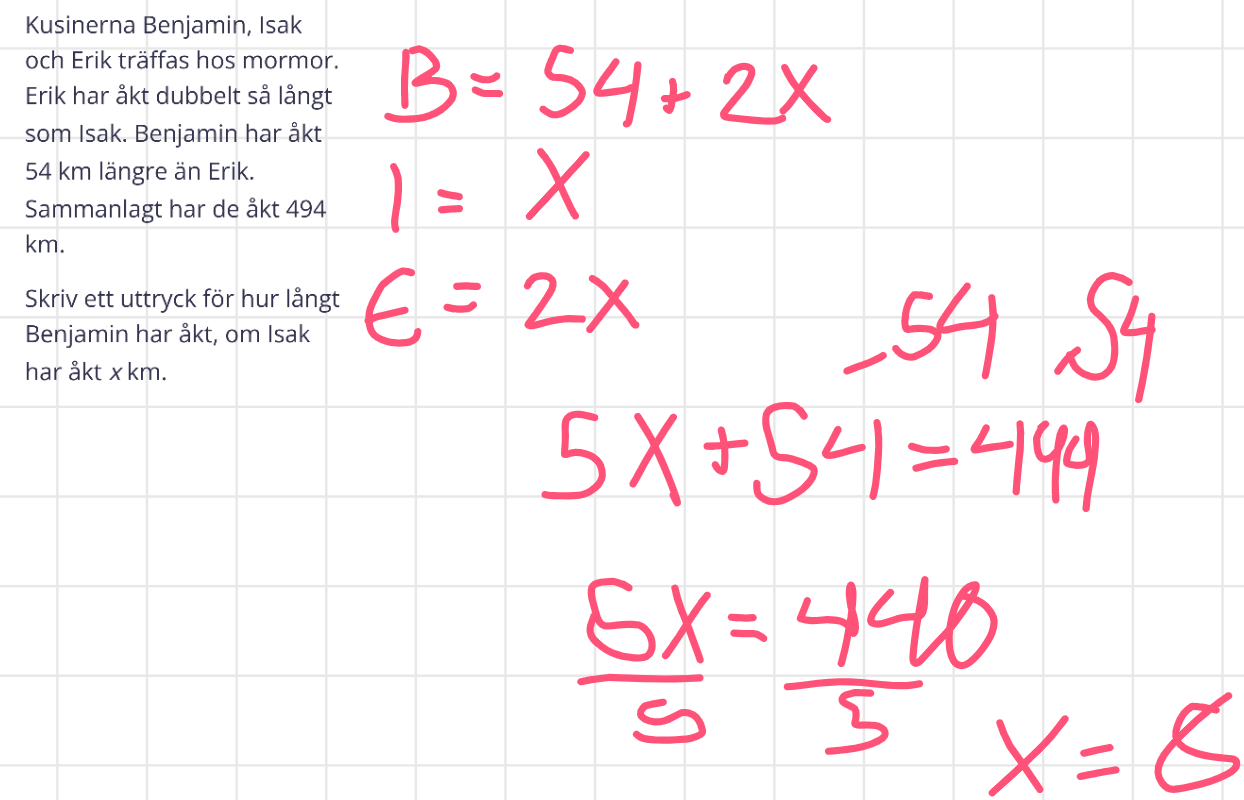 Kusinerna Benjamin, Isak
och Erik träffas hos mormor.
Erik har åkt dubbelt så långt
som Isak. Benjamin har åkt
54 km längre än Erik.
Sammanlagt har de åkt 494
km.
Skriv ett uttryck för hur långt
Benjamin har åkt, om Isak
har åkt x km.
B = 54 + 2x
I = x
E = 2x
-54 -54
5x + 54 = 494
5x = 440
5 5
x = 8